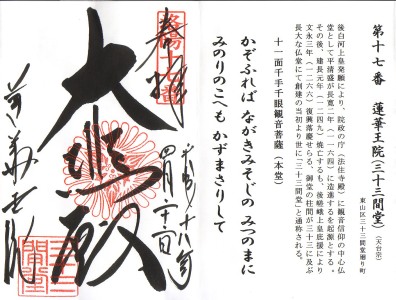 第十七番　蓮華王院(三十三間堂)
(天台宗)
東山区三十三間堂廻り町
後白河上皇発願により、院政の庁(法住寺殿)に観音信仰の中心仏
堂として平清盛が長寛二年(一一六四)に造進するを起源とする。
その後、建長元年(一二四九)焼亡するも、後嵯峨上皇庇援により
文永三年(一二六六)復興落慶せらる。御堂の柱間が三十三に及ぶ
長大な仏堂にて創建の当初より世に「三十三間堂」と通称される。
十一面千手千眼観音菩薩(本堂)
かぞふれば　ながきみそじの　みつのまに
みのりのこへも　かずまさりして
奉拝
平成十八年
四月二十二日
大悲殿